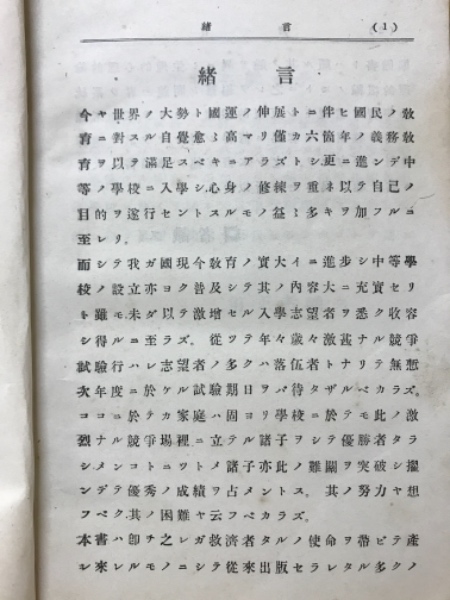 緒言 (1)
緒言
今ヤ世界ノ大勢ト國運ノ伸展トニ伴ヒ國民ノ敎
育ニ對スル自覺愈〻高マリ僅カ六箇年ノ義務敎
育ヲ以テ滿足スベキニアラズトシ更ニ進ンデ中
等ノ學校ニ入學シ心身ノ修練ヲ重ネ以テ自己ノ
目的ヲ遂行セントスルモノ益〻多キヲ加フルニ
至レリ。
而シテ我ガ國現今敎育ノ實大イニ進步シ中等學
校ノ設立亦ヨク普及シテ其ノ內容大ニ充實セリ
ト雖モ未ダ以テ激增セル入學志望者ヲ悉ク收容
シ得ルニ至ラズ。從ツテ年々歲々激甚ナル競爭
試驗行ハレ志望者ノ多クハ落伍者トナリテ無慙
次年度ニ於ケル試驗期日ヲバ待タザルベカラズ。
ココニ於テカ家庭ハ固ヨリ學校ニ於テモ此ノ激
烈ナル競爭場裡ニ立テル諸子ヲシテ優勝者タラ
シメンコトニツトメ諸子亦此ノ難關ヲ突破シ擢
ンデテ優秀ノ成績ヲ占メントス。其ノ努力ヤ想
フベク其ノ困難ヤ云フベカラズ。
本書ハ卽チ之レガ救濟者タルノ使命ヲ帶ビテ產
レ來レルモノニシテ從來出版セラレタル多クノ